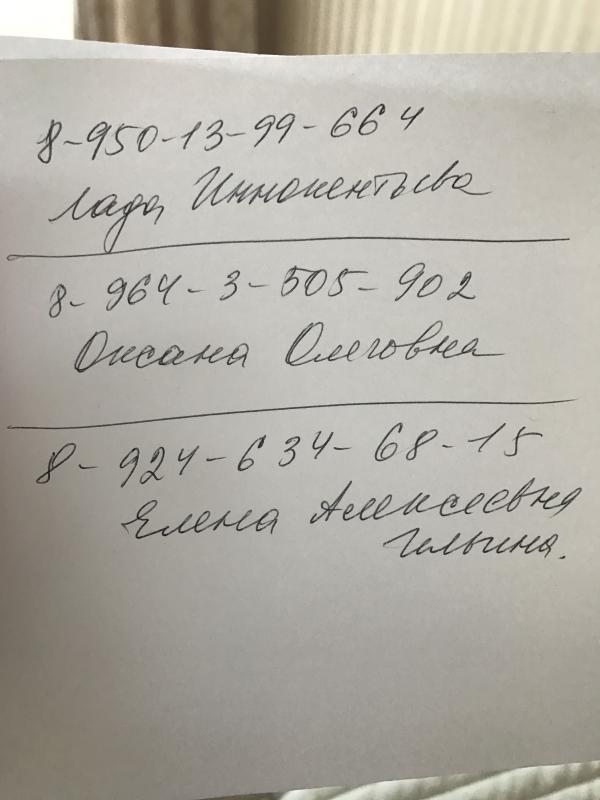 8-950-13-99-664
Лада Иннокентьева
8-964-3-505-902
Оксана Олеговна
8-924-634-68-15
Елена Алексеевна
Ильина.